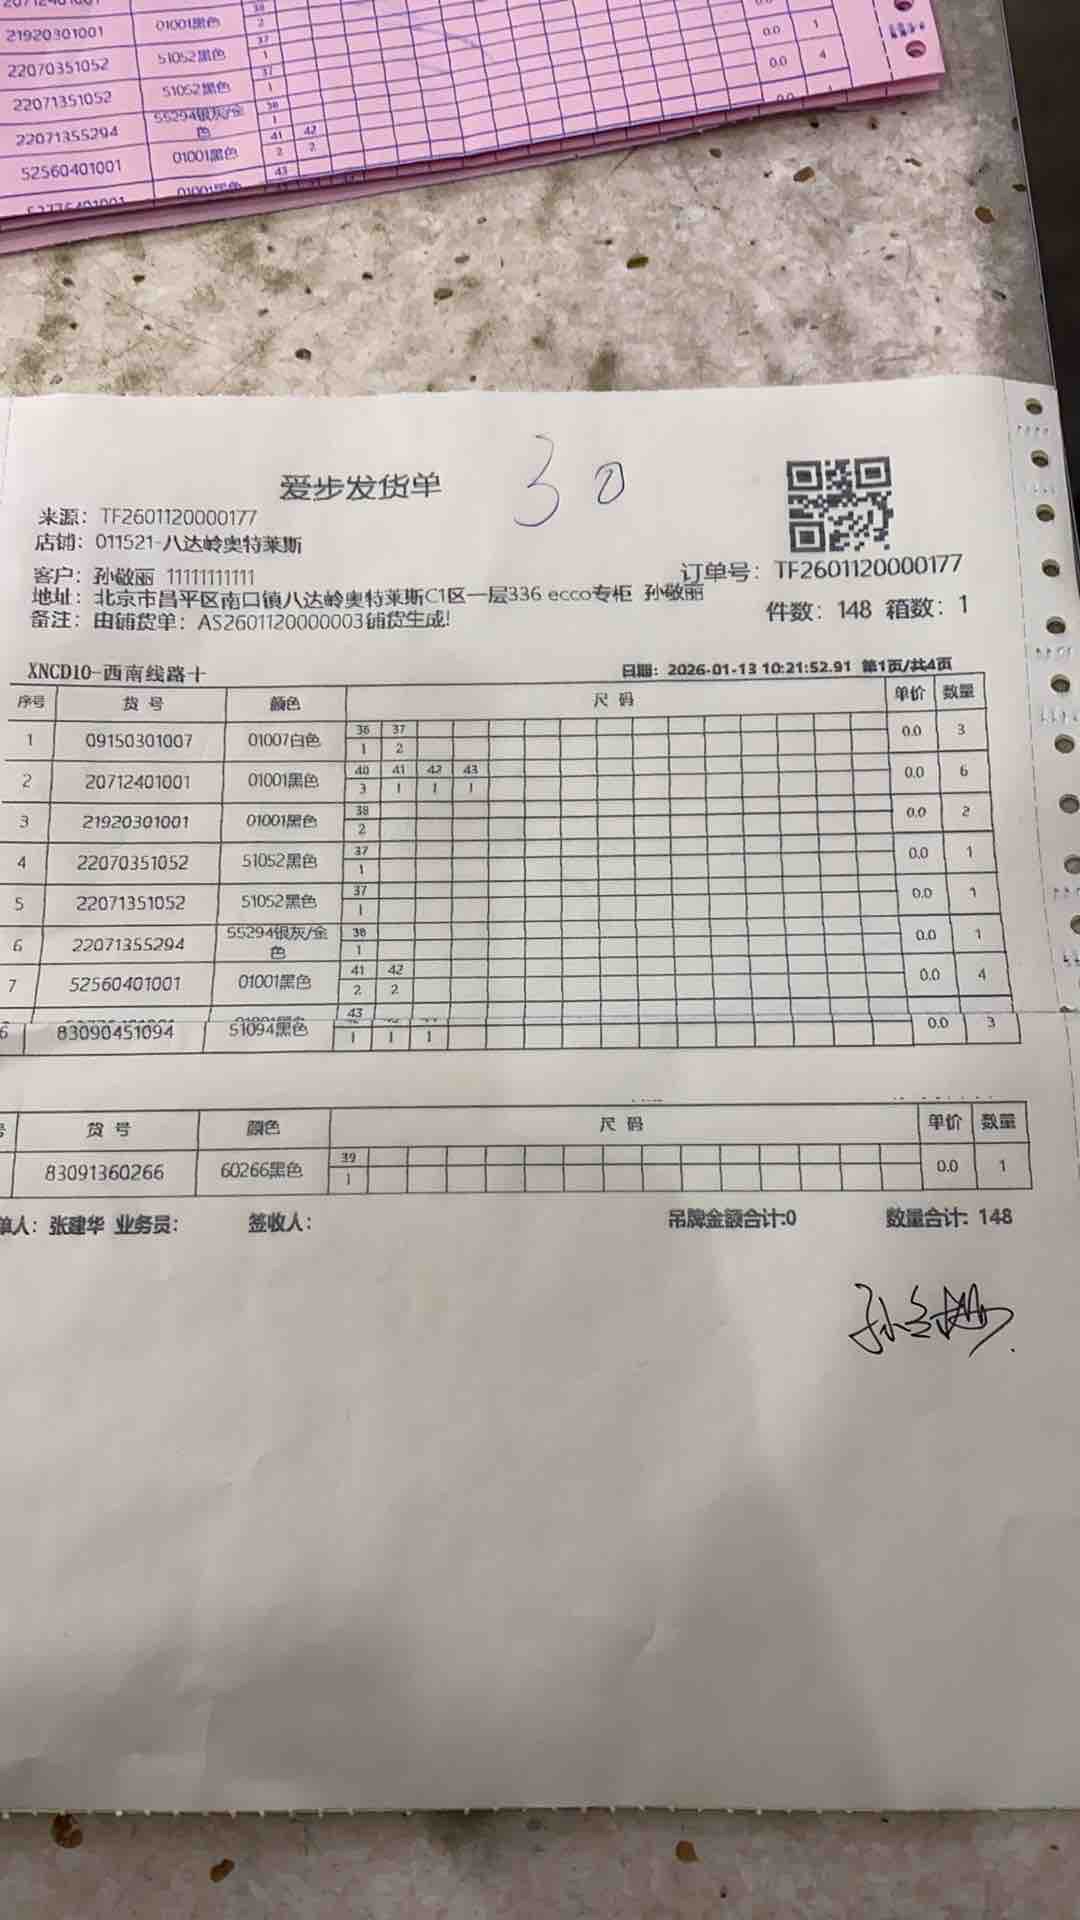 21920301001 01001黑色 38 2
22070351052 51052黑色 37 1 0.0 1
22071351052 51052黑色 37 1 0.0 4
22071355294 55294银灰/金色 38 1
52560401001 01001黑色 41 42 2 2
01001黑色 43
30
爱步发货单
来源: TF2601120000177
店铺: 011521-八达岭奥特莱斯
客户: 孙敬丽 11111111111
订单号: TF2601120000177
地址: 北京市昌平区南口镇八达岭奥特莱斯C1区一层336 ecco专柜 孙敬丽
件数: 148 箱数: 1
备注: 由铺货单: AS2601120000003铺货生成!
XNCD10-西南线路十 日期: 2026-01-13 10:21:52.91 第1页/共4页
序号 货号 颜色 尺码 单价 数量
36 37
1 09150301007 01007白色 0.0 3
1 2
40 41 42 43
2 20712401001 01001黑色 0.0 6
3 1 1 1
38
3 21920301001 01001黑色 0.0 2
2
37
4 22070351052 51052黑色 0.0 1
1
37
5 22071351052 51052黑色 0.0 1
1
38
6 22071355294 55294银灰/金色 0.0 1
1
41 42
7 52560401001 01001黑色 0.0 4
2 2
43
6 83090451094 51094黑色 0.0 3
1 1 1
号 货号 颜色 尺码 单价 数量
39
83091360266 60266黑色 0.0 1
1
单人: 张建华 业务员: 签收人: 吊牌金额合计:0 数量合计: 148